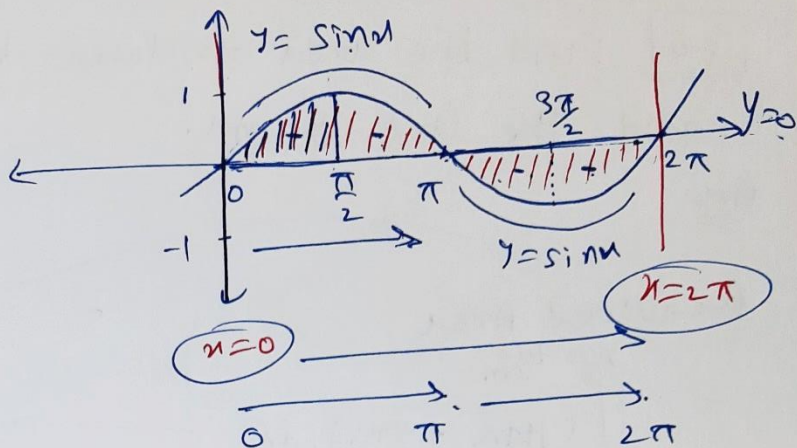 y = sinx
1
3π/2
y=0
0 π/2 π 2π
-1
y=sinx
x=2π
x=0
0 π 2π